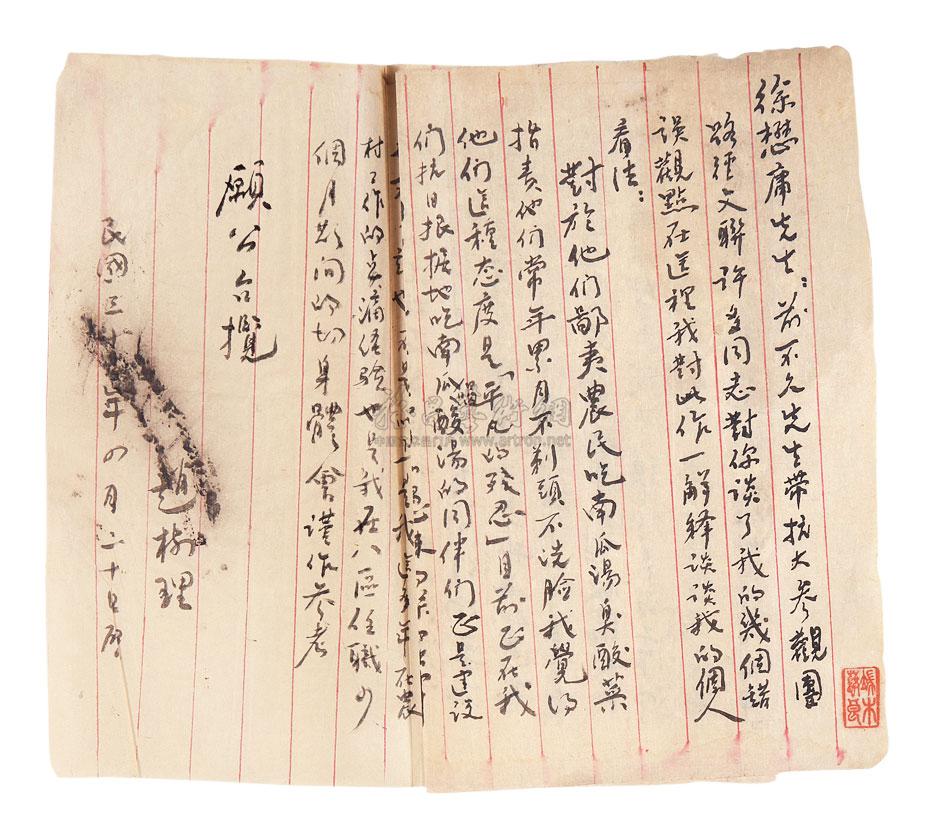 徐懋庸先生：前不久先生带抗大参觀團
路徑文聯許多同志對你談了我的幾個錯
误觀點在这裡我對此作一解释談談我的個人
看法：
對於他们鄙夷農民吃南瓜湯臭酸菜
指责他们常年累月不剃頭不洗脸我覺得
他们這種态度是「平凡的残忍」目前正在我
们抗日根据地吃南瓜醋酸湯的同伴们正是建设
年在農
村工作的点滴经验也是我在八區任職
個月期间的切身體會谨作参考
願公台攬
趙樹理
民國三十年四月二十日启
www.artron.net